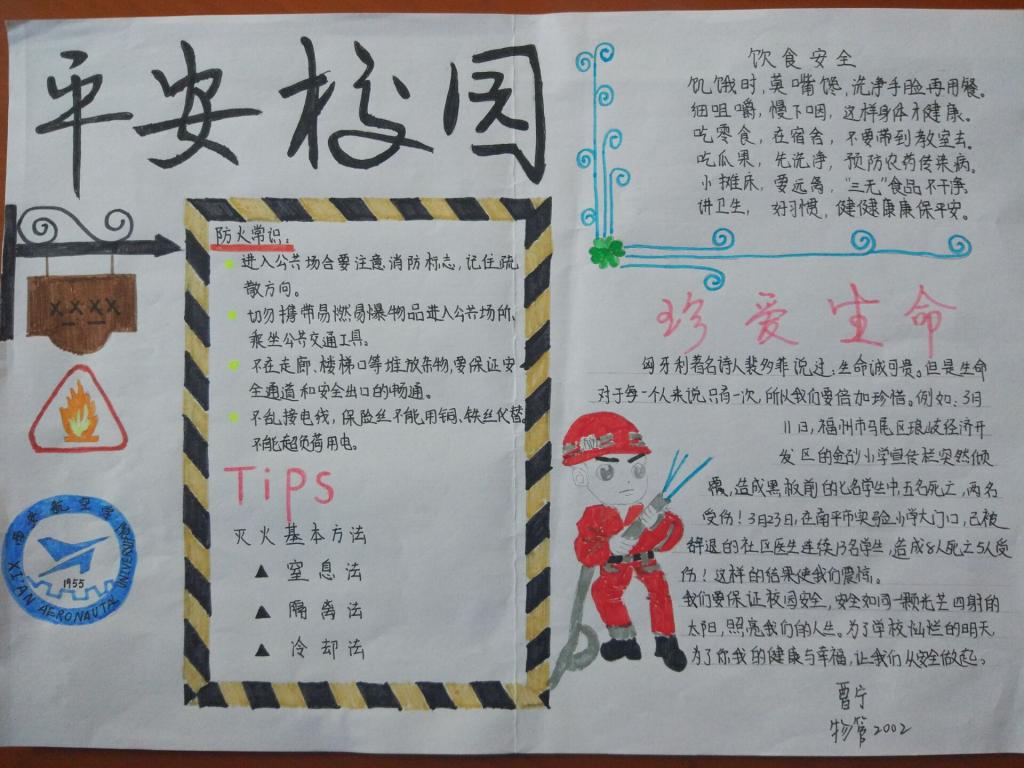 平安校园
防火常识:
进入公共场合要注意消防标志,记住疏
散方向。
切勿携带易燃易爆物品进入公共场所、
乘坐公共交通工具。
不在走廊、楼梯口等堆放杂物,要保证安
全通道和安全出口的畅通。
不乱接电线,保险丝不能用铜、铁丝代替
不能超负荷用电。
Tips
灭火基本方法
▲ 窒息法
▲ 隔离法
▲ 冷却法
XX XX
西安航空学院
1955
XI'AN AERONAUTICAL UNIVERSITY
饮食安全
饥饿时,莫嘴馋,洗净手脸再用餐。
细咀嚼,慢下咽,这样身体才健康。
吃零食,在宿舍,不要带到教室去。
吃瓜果,先洗净,预防农药传染病。
小摊床,要远离,"三无"食品不干净。
讲卫生,好习惯,健健康康保平安。
珍爱生命
匈牙利著名诗人裴多菲说过:生命诚可贵。但是生命
对于每一个人来说只有一次,所以我们要倍加珍惜。例如:3月
11日,福州市马尾区琅岐经济开
发区的金砂小学宣传栏突然倾
覆,造成黑板前的七名学生中五名死亡,两名
受伤!3月23日,在南平市实验小学大门口,已被
辞退的社区医生连续13名学生,造成8人死亡5人受
伤!这样的结果使我们震惊。
我们要保证校园安全,安全如同一颗光芒四射的
太阳,照亮我们的人生。为了学校灿烂的明天
为了你我的健康与幸福,让我们从安全做起。
曹宁
物管2002